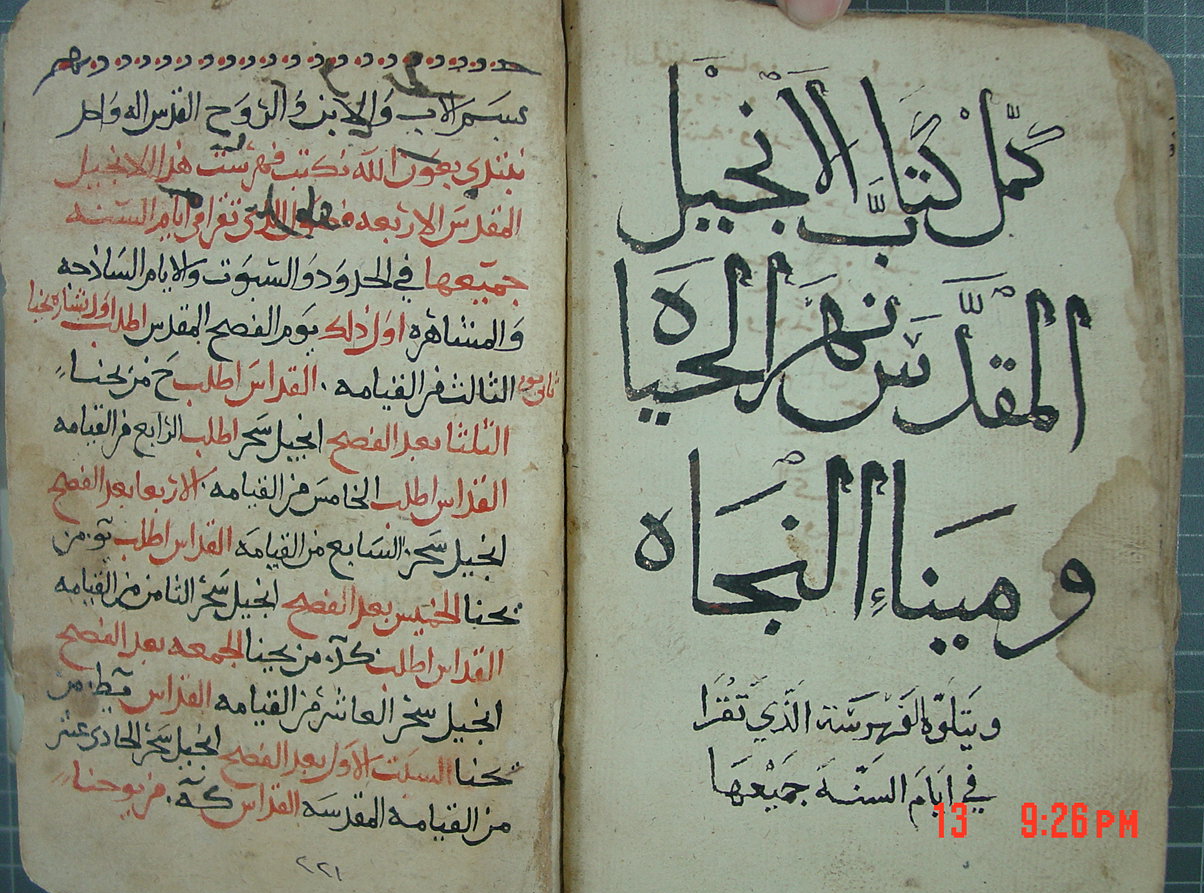 كمل كتاب الانجيل
المقدس نهر الحياه
وميناء النجاه
ويتلوه الفهرسة الذي تقرا
في ايام السنة جميعها
13 9:26 PM
بسم الاب والابن والروح القدس اله واحد
نبتدي بعون الله نكتب فهرست هذا الانجيل
المقدس الاربعه فصول الذي تقرا في ايام السنه
جميعها في الحدود والسبوت والايام الساذجه
والمتشاهره اول ذلك يوم الفصح المقدس اطلب اول بشارة يحنا
ثاني يوم الثالث من القيامه . القداس اطلب ح من يحنا
الثلثا بعد الفصح انجيل سحر اطلب الرابع من القيامه
القداس اطلب الخامس من القيامه . الاربعا بعد الفصح
انجيل سحر السابع من القيامه القداس اطلب من
يحنا الخميس بعد الفصح انجيل سحر الثامن من القيامه
القداس اطلب من يحنا الجمعه بعد الفصح
انجيل سحر العاشر من القيامه القداس من
يحنا السبت الاول بعد الفصح انجيل سحر الحادي عشر
من القيامه المقدسه القداس كه . من يوحنا
٢٢١